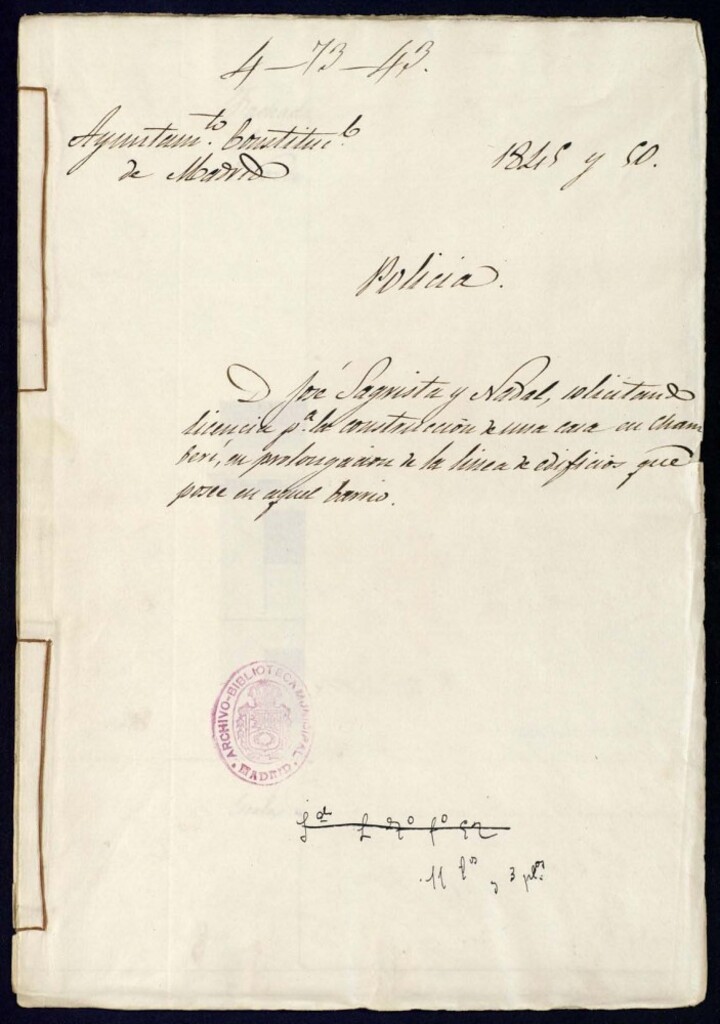 4-73-43.
Ayuntam.to Constituc.l
de Madrid
1845 y 50.
Policia.
D. José Sagrista y Nadal, solicitando
licencia p.a la construcción de una casa en Cham
berí, en prolongacion de la linea de edificios que
posee en aquel barrio.
ARCHIVO-BIBLIOTECA MUNICIPAL
MADRID
11 f.os y 3 pl.os